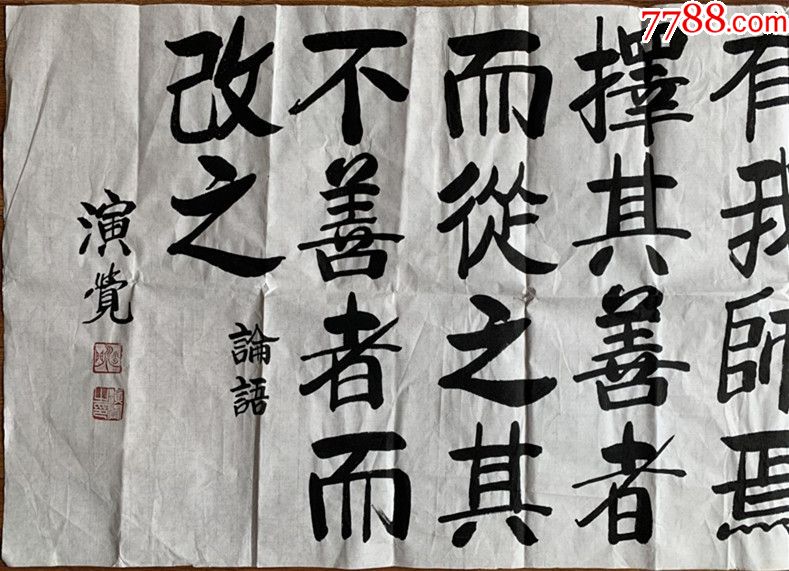 7788.com
有我師焉
擇其善者
而從之其
不善者而
改之
論語
演覺